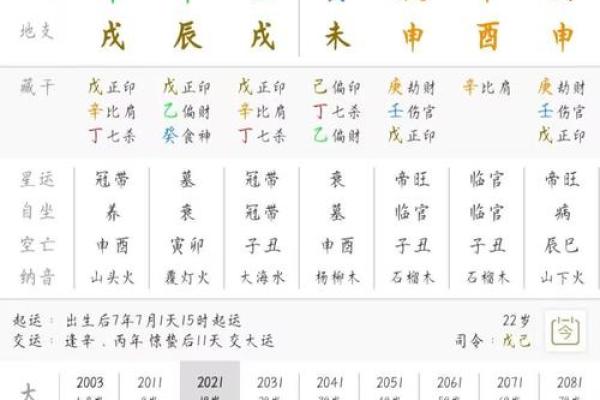 地支 戌 辰 戌 未 申 酉 申
藏干 戊正印 戊正印 戊正印 己偏印 庚劫财 辛比肩 庚劫财
辛比肩 乙偏财 辛比肩 丁七杀 壬伤官 壬伤官
丁七杀 癸食神 丁七杀 乙偏财 戊正印 戊正印
星运 冠带 墓 冠带 衰 帝旺 临官 帝旺
自坐 养 衰 冠带 墓 临官 临官 病
空亡 申酉 寅卯 子丑 申酉 子丑 子丑 辰巳
纳音 山头火 覆灯火 大海水 杨柳木 石榴木 石榴木 山下火
起运：出生后7年7月1天15时起运 22岁
交运：逢辛、丙年 惊蛰后11天 交大运 司令：戊己
今
大 2003 2011 2021 2031 2041 2051 2061 2071 2081